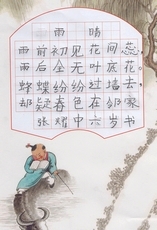 雨晴
雨前初见花间蕊
雨后全无叶底花
蜂蝶纷纷过墙去
却疑春色在邻家
张 中六岁书